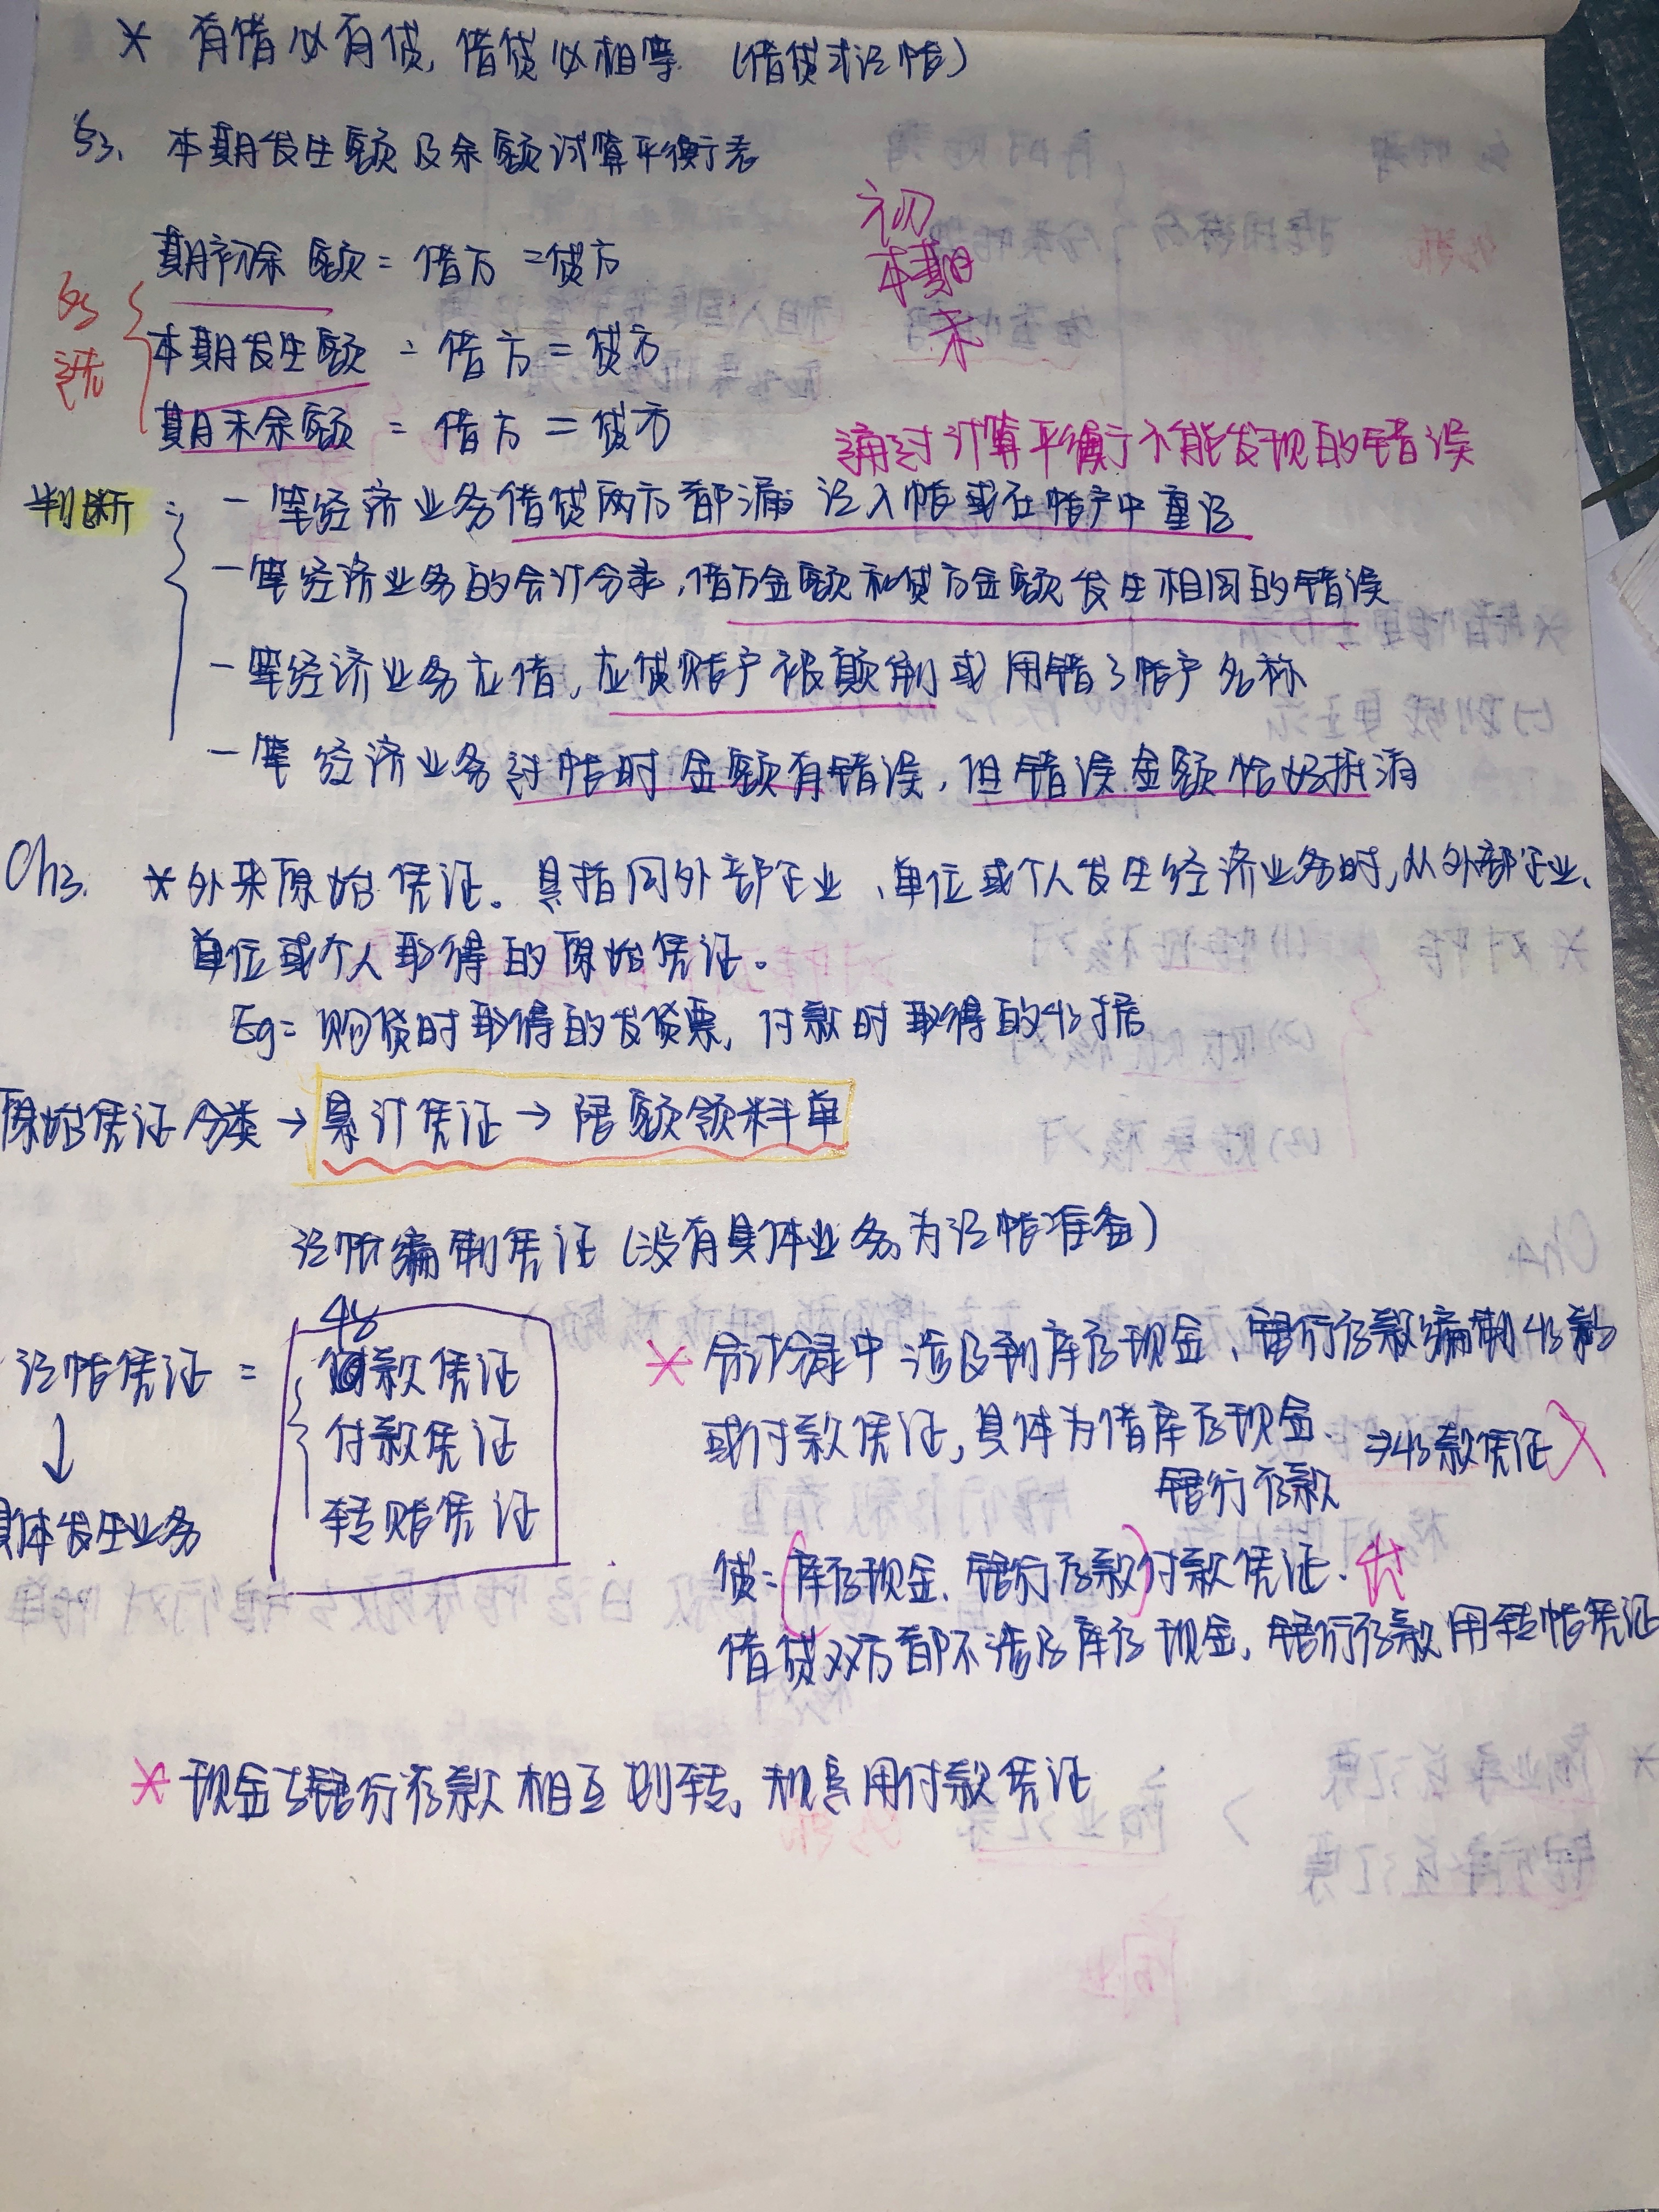 * 有借必有贷,借贷必相等.(借贷式记帐)
§3、本期发生额及余额试算平衡表
初
本期
末
多选
期初余额=借方=贷方
本期发生额=借方=贷方
期末余额=借方=贷方
通过计算平衡不能发现的错误
判断:
一笔经济业务借贷两方都漏记入帐或在帐户中重记
一笔经济业务的会计分录,借方金额和贷方金额发生相同的错误
一笔经济业务应借,应贷账户被颠倒或用错了帐户名称
一笔经济业务过帐时金额有错误,但错误金额恰好抵消
Ch3. *外来原始凭证。是指同外部企业、单位或个人发生经济业务时,从外部企业、
单位或个人取得的原始凭证。
Eg=购货时取得的发货票,付款时取得的收据
原始凭证分类→累计凭证→限额领料单
记帐编制凭证(没有具体业务为记帐准备)
记帐凭证=
↓
具体发生业务
收款凭证
付款凭证
转账凭证
* 会计分录中涉及到库存现金、银行存款编制收款
或付款凭证,具体为借库存现金、
银行存款
→收款凭证
贷:(库存现金、银行存款)付款凭证.出
借贷双方都不涉及库存现金,银行存款用转帐凭证
* 现金与银行存款相互划转,规定用付款凭证